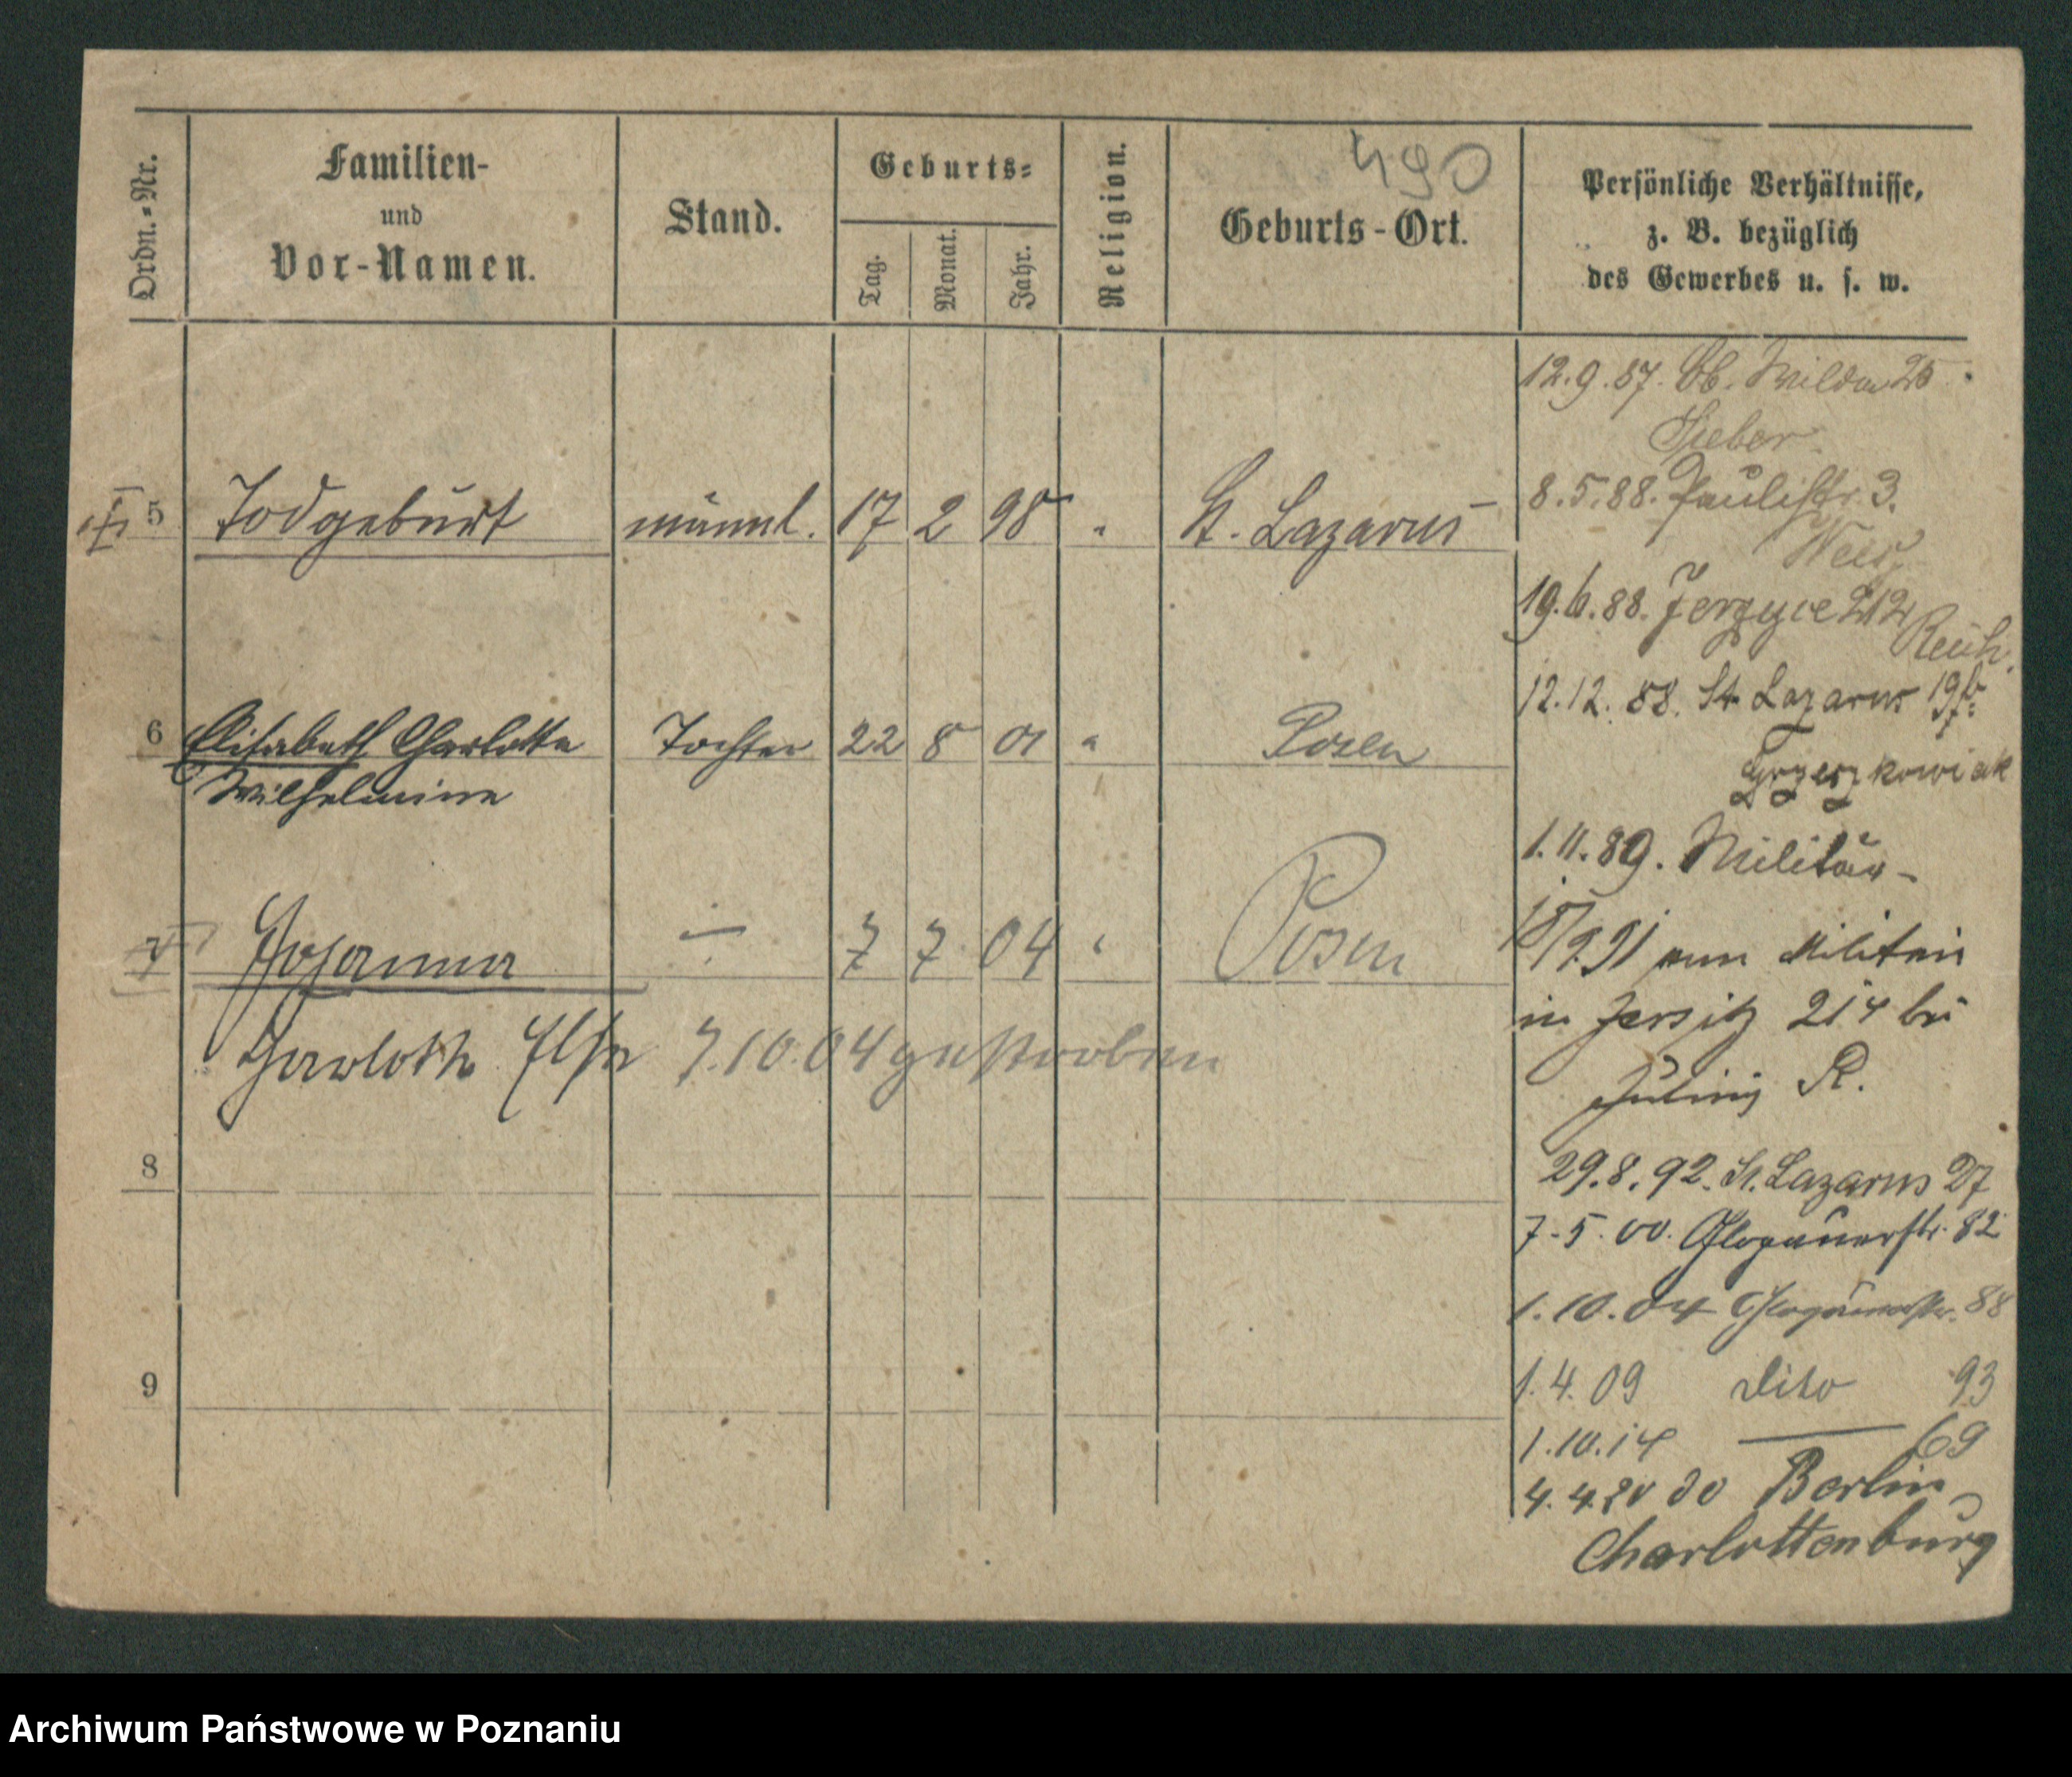 490
Ordn.-Nr.
Familien-
und
Vor-Namen.
Stand.
Geburts-
Tag.
Monat.
Jahr.
Religion.
Geburts-Ort.
Persönliche Verhältnisse,
z. B. bezüglich
des Gewerbes u. s. w.
5 Todgeburt männl. 17 2 98 " St. Lazarus
6 Elisabeth Charlotte Tochter 22 8 01 " Posen
Wilhelmine
7 Johanna 7 7 04 " Posen
Charlotte Else 7.10.04 gestorben
8
9
12.9.87. Ob. Wilda 25
Sieber
8.5.88. Paulistr. 3.
19.6.88. Jerzyce 212
12.12.88. St. Lazarus 19b
Grzeszkowiak
1.11.89. Militär-
18/9.91 vom Militair
in Jersitz 214 bei
R.
29.8.92. St. Lazarus 27
7.5.00. Glogauerstr. 82
1.10.04 Glogauerstr. 88
1.4.09 dito 93
1.10.14 — 69
4.4.20 do Berlin
Charlottenburg
Archiwum Państwowe w Poznaniu